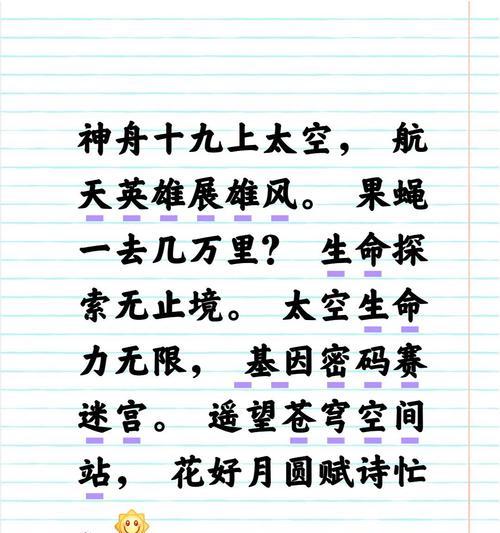 神舟十九上太空， 航
天英雄展雄风。 果蝇
一去几万里？ 生命探
索无止境。 太空生命
力无限， 基因密码赛
迷宫。 遥望苍穹空间
站， 花好月圆赋诗忙